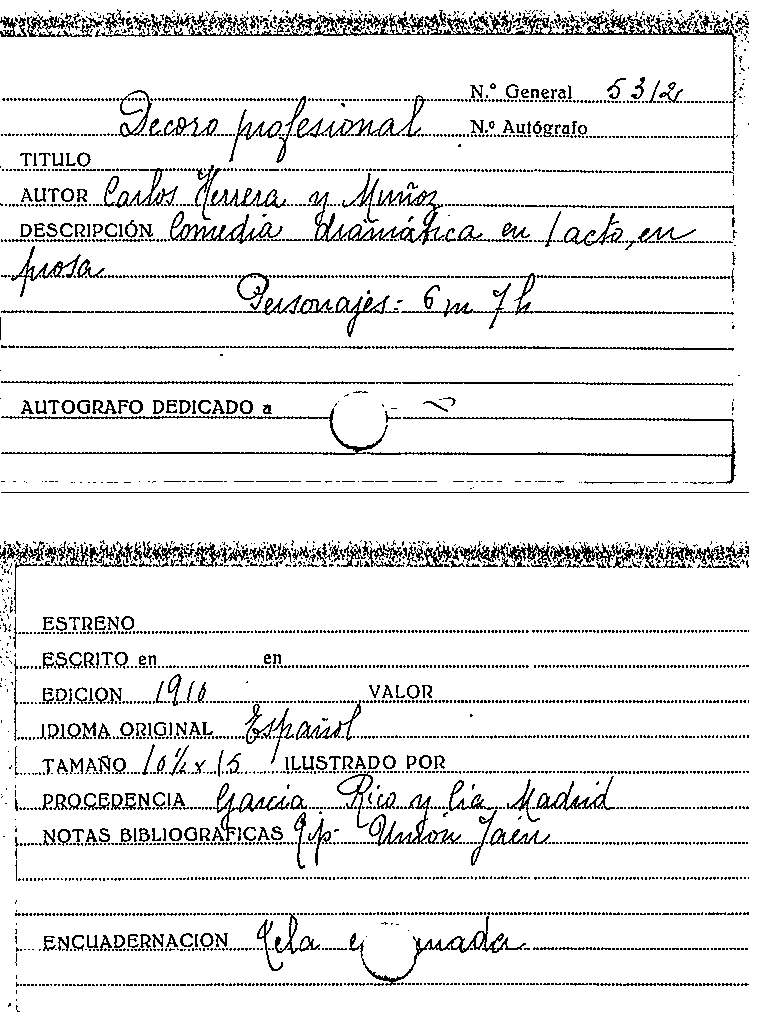 N.º General 5312
Decoro profesional N.º Autógrafo
TITULO
AUTOR Carlos Herrera y Muñoz
DESCRIPCIÓN Comedia dramática en 1 acto, en
prosa
Personajes:- 6 m 7 h
AUTOGRAFO DEDICADO a
ESTRENO
ESCRITO en en
EDICION 1910 VALOR
IDIOMA ORIGINAL Español
TAMAÑO 10½ x 15 ILUSTRADO POR
PROCEDENCIA Garcia Rico y Cia Madrid
NOTAS BIBLIOGRAFICAS Tip. Unión Jaén
ENCUADERNACION Tela